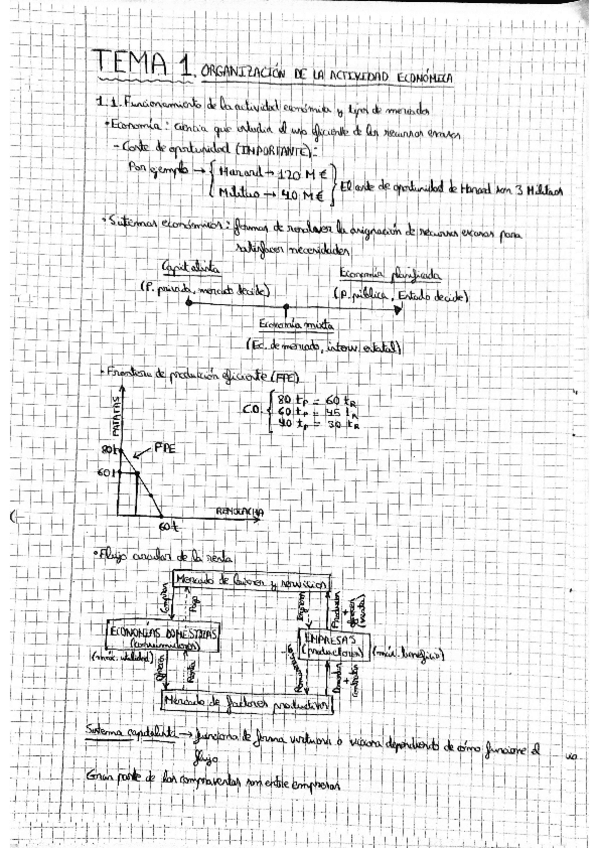 TEMA 1. ORGANIZACIÓN DE LA ACTIVIDAD ECONÓMICA
1.1. Funcionamiento de la actividad económica y tipos de mercado
• Economía: ciencia que estudia el uso eficiente de los recursos escasos
- Coste de oportunidad (IMPORTANTE):
Por ejemplo → Hazard → 120 M €
Militao → 40 M €
El coste de oportunidad de Hazard son 3 Militaos
• Sistemas económicos: formas de resolver la asignación de recursos escasos para
satisfacer necesidades
Capitalista
Economía planificada
(P. privada, mercado decide)
(P. pública, Estado decide)
Economía mixta
(Ec. de mercado, interv. estatal)
• Frontera de producción eficiente (FPE)
C.O. 80 tP = 60 tR
60 tP = 45 tR
40 tP = 30 tR
PATATAS
80t
FPE
60t
REMOLACHA
60t
• Flujo circular de la renta
Mercado de bienes y servicios
Compran
Pago
Ingresos
Producen
+
(venta)
ECONOMÍAS DOMÉSTICAS
(consumidores)
(máx. utilidad)
EMPRESAS
(productores)
(máx. beneficio)
Ofrecen
Renta
Demandan
+
Contratan
Mercado de factores productivos
Sistema capitalista → funciona de forma virtuosa o viciosa dependiendo de cómo funcione el
flujo
Gran parte de las compraventas son entre empresas